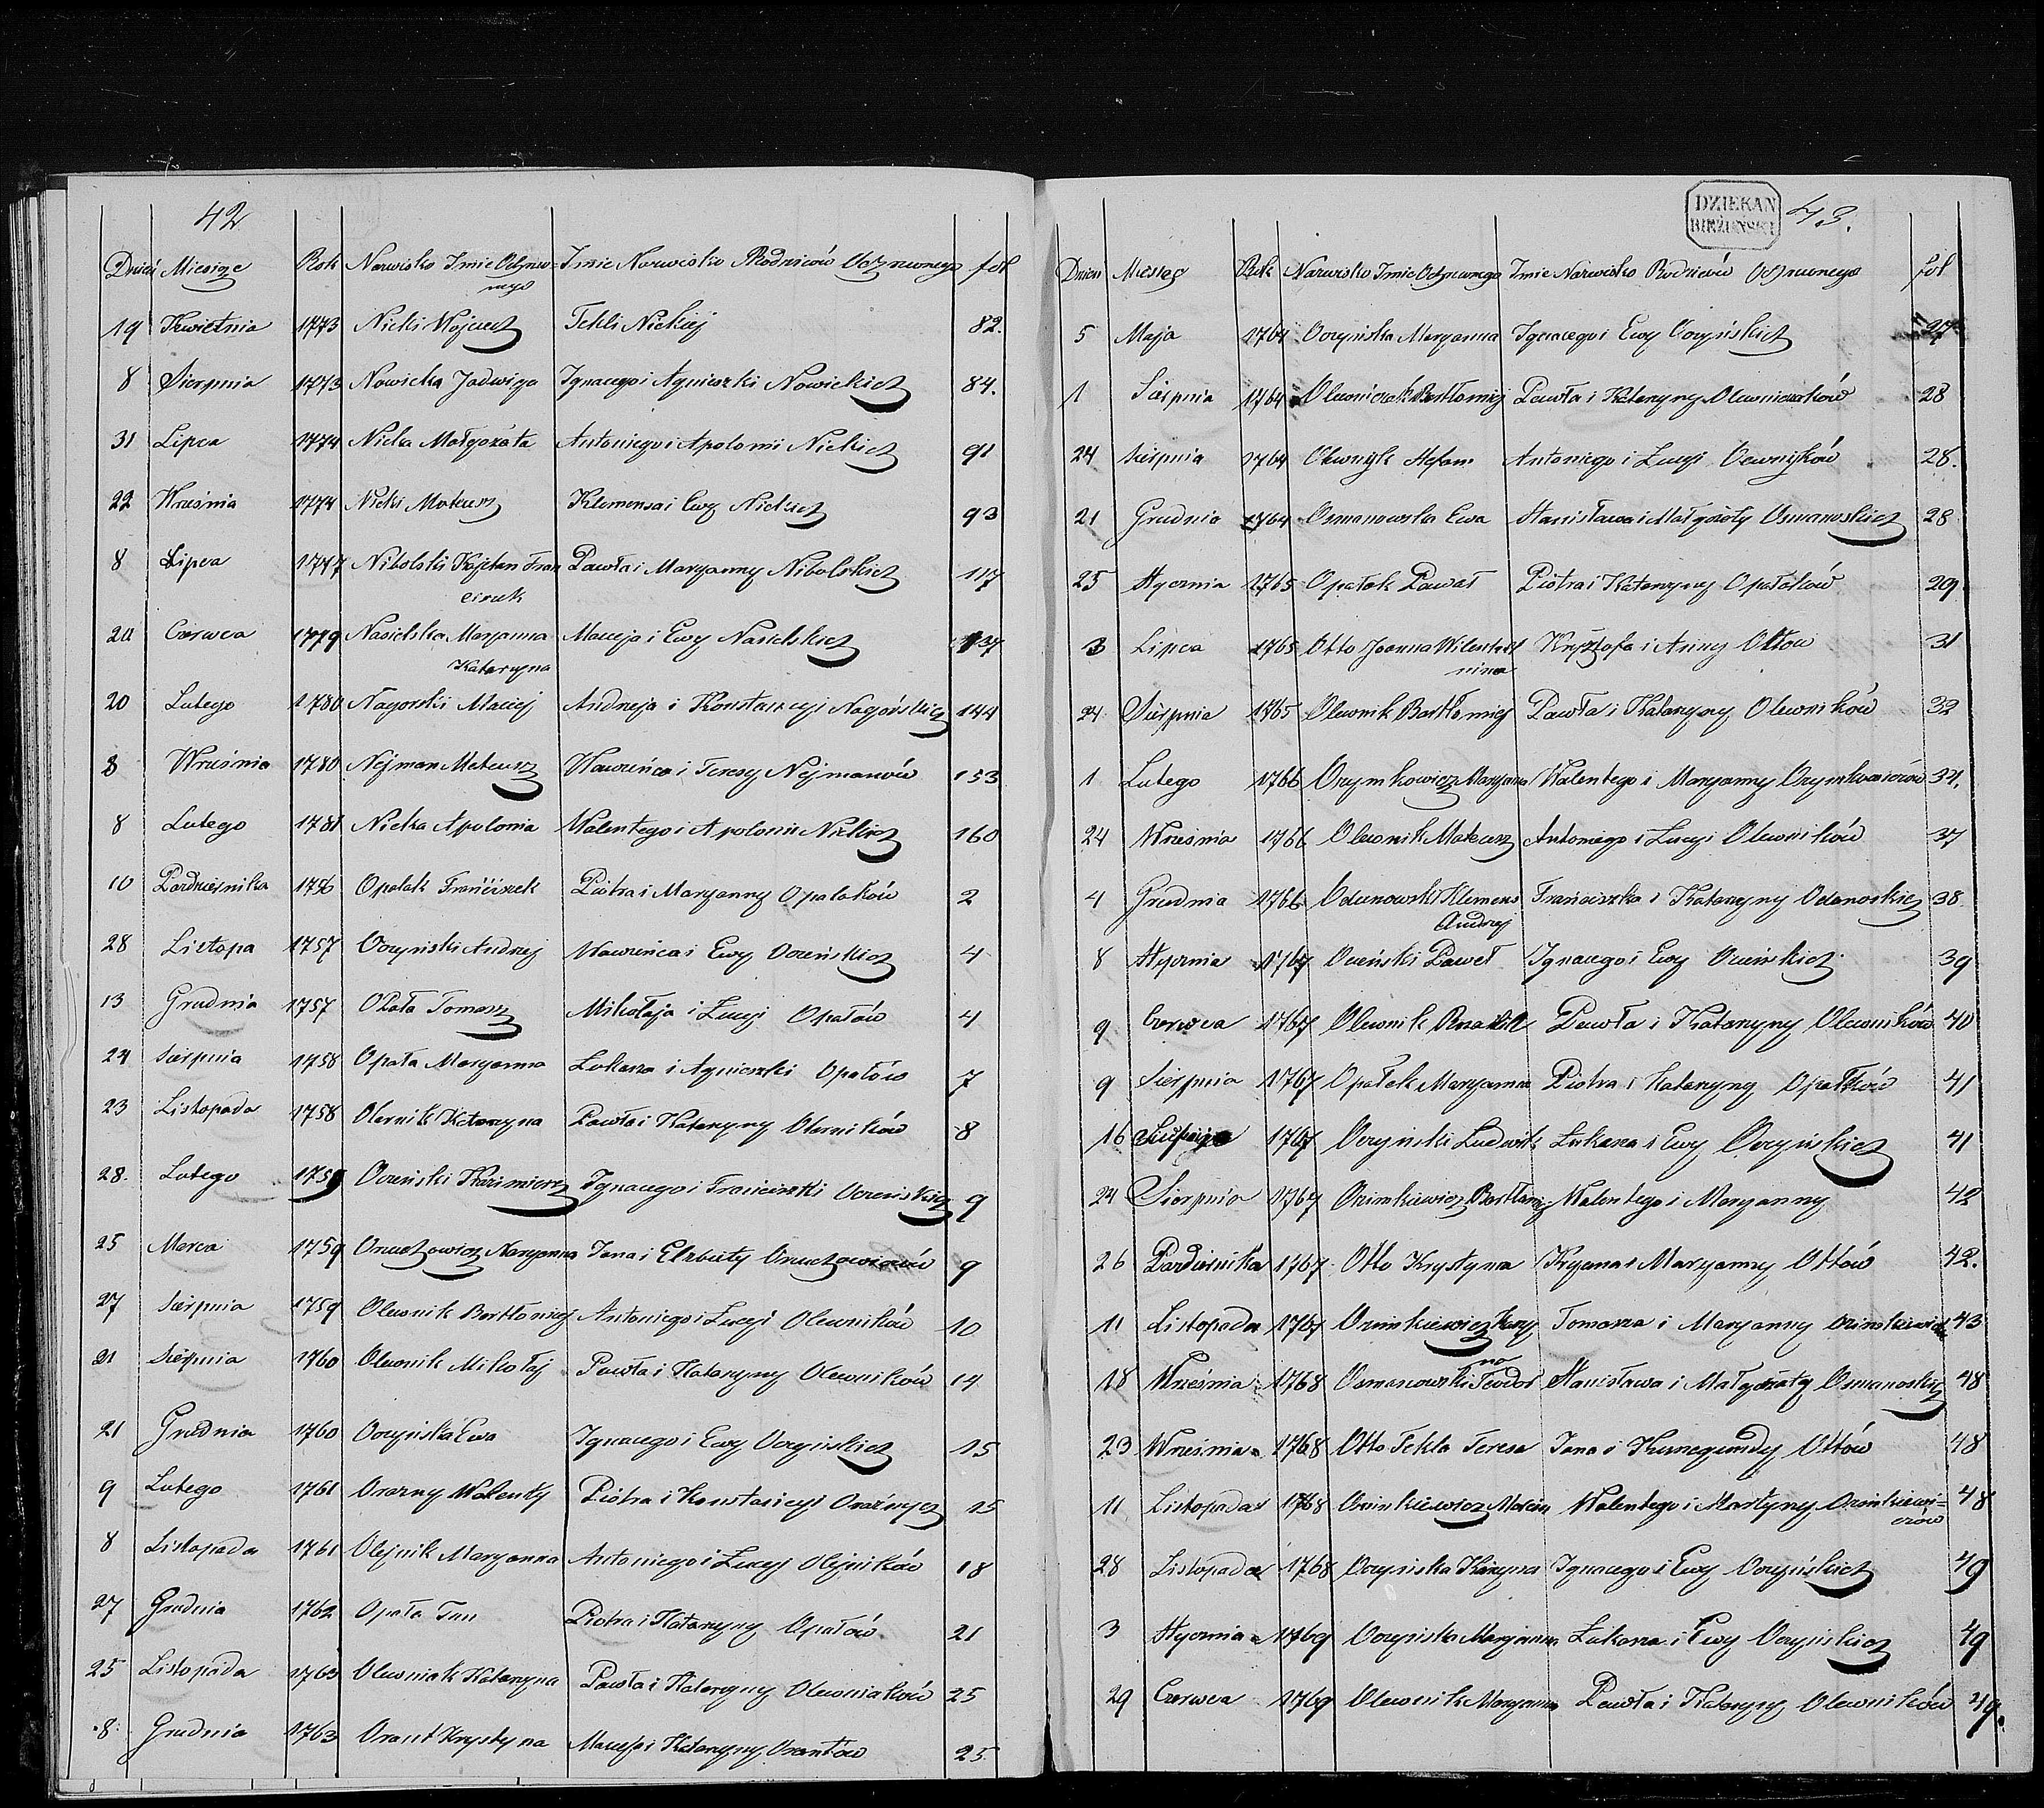 42
Dzień Miesiąc Rok Nazwisko Imie Ochrzczo=
nego Imie Nazwisko Rodziców Ochrzczonego fol
19 Kwietnia 1773 Nicki Wojciech Tekli Nickiej 82.
8 Sierpnia 1773 Nowicka Jadwiga Ignacego i Agnieszki Nowickich 84.
31 Lipca 1774 Nicka Małgorzata Antoniego i Apolonii Nickich 91
22 Września 1774 Nicki Mateusz Klemensa i Ewy Nickich 93
8 Lipca 1777 Nibolski Kajetan Fran Pawła i Maryanny Nibolskich 117
ciszek
20 Czerwca 1779 Nasielska Maryanna Macieja i Ewy Nasielskich 137
Katarzyna
20 Lutego 1780 Nagorski Maciej Andrzeja i Konstancyi Nagórskich 144
8 Września 1780 Nejman Mateusz Wawrzeńca i Teresy Nejmanów 153
8 Lutego 1781 Nicka Apolonia Walentego i Apolonii Nickich 160
10 Pazdziernika 1756 Opalak Franciszek Piotra i Maryanny Opalaków 2
28 Listopa 1757 Oczyński Andrzej Wawrzeńca i Ewy Oczeńskich 4
13 Grudnia 1757 Opała Tomasz Mikołaja i Łucyi Opałów 4
24 Sierpnia 1758 Opała Maryanna Łukasza i Agnieszki Opałów 7
23 Listopada 1758 Olewnik Katarzyna Pawła i Katarzyny Olewników 8
28. Lutego 1759 Oczeński Kazimierz Ignacego i Franciszki Oczeńskich 9
25 Marca 1759 Orzuchowicz Maryanna Jana i Elzbiety Orzuchowiczów 9
27 Sierpnia 1759 Olewnik Bartłomiej Antoniego i Łucyi Olewników 10
21 Sierpnia 1760 Olewnik Mikołaj Pawła i Katarzyny Olewników 14
21 Grudnia 1760 Oczyńska Ewa Ignacego i Ewy Oczyńskich 15
9 Lutego 1761 Walenty Piotra i Konstancyi 15
8 Listopada 1761 Olejnik Maryanna Antoniego i Łucyi Olejników 18
27 Grudnia 1762 Opała Jan Piotra i Katarzyny Opałów 21
25 Listopada 1763 Olewniak Katarzyna Pawła i Katarzyny Olewniaków 25
8 Grudnia 1763 Krystyna Macieja i Katarzyny 25
DZIEKAN
BIEŻUŃSKI
43.
Dzien Miesiąc Rok Nazwisko Imie Ochrzczonego Imie Nazwisko Rodziców Ochrzczonego fol
5 Maja 1764 Oczyńska Maryanna Ignacego i Ewy Oczyńskich 27
1 Sierpnia 1764 Olewniczak Bartłomiej Pawła i Katarzyny Olewniczaków 28
24 Sierpnia 1764 Olewnik Stefan Antoniego i Łucyi Olewników 28.
21 Grudnia 1764 Osmanowska Ewa Stanisława i Małgorzaty Osmanoskich 28
25 Stycznia 1765 Opałek Paweł Piotra i Katarzyny Opałków 29
3 Lipca 1765 Otto Joanna Krysztofa i Anny Ottow 31
24 Sierpnia 1765 Olewnik Bartłomiej Pawła i Katarzyny Olewników 32
1 Lutego 1766 Ozymkowicz Maryanna Walentego i Maryanny Ozymkowiczów 34.
24 Września 1766 Olewnik Mateusz Antoniego i Łucyi Olewników 37
4 Grudnia 1766 Klemens Franciszka i Katarzyny Odanoskich 38.
Andrzej
8 Stycznia 1767 Oceński Paweł Ignacego i Ewy Oceńskich 39
9 Czerwca 1767 Olewnik Pawła i Katarzyny Olewników 40
9 Sierpnia 1767 Opałek Maryanna Piotra i Katarzyny Opałków 41
16 Sierpnia 1767 Oczyński Ludwik Łukasza i Ewy Oczyńskich 41
24 Sierpnia 1767 Ozimkiewicz Bartłomiej Walentego i Maryanny 42
26 Pazdziernika 1767 Otto Krystyna Maryanny Ottów 42.
11 Listopada 1767 Ozimkiewicz Tomasza i Maryanny 43
18 Września 1768 Osmanowski Teodor Stanisława i Małgorzaty Osmanoskich 48
23 Września 1768 Otto Tekla Teresa Jana i Kunegundy Ottów 48
11 Listopada 1768 Ozimkiewicz Marcin Walentego i Martyny Ozimkiewi=
czów 48
28 Listopada 1768 Oczyńska Ignacego i Ewy Oczyńskich 49
3 Stycznia 1769 Oczyńska Maryanna Łukasza i Ewy Oczyńskich 49
29 Czerwca 1769 Olewnik Maryanna Pawła i Katarzyny Olewników 49.